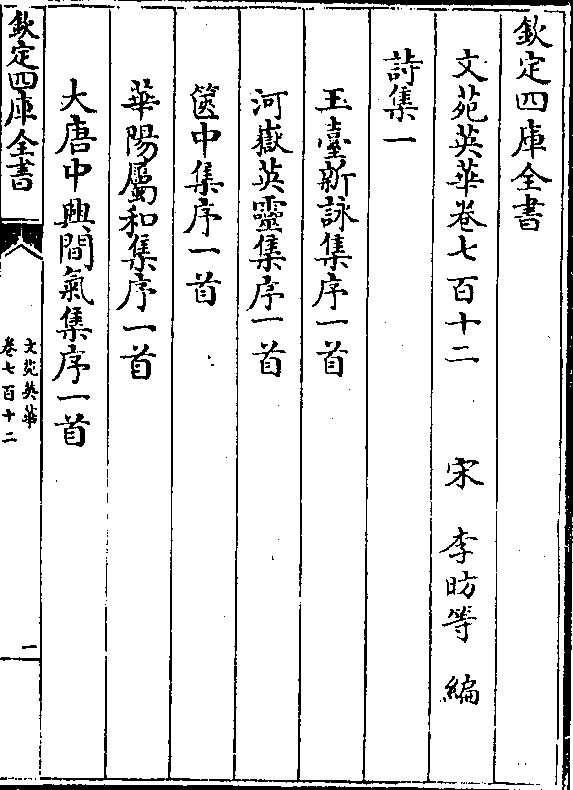 欽定四庫全書
文苑英華卷七百十二 宋 李昉等 編
詩集一
玉臺新詠集序一首
河嶽英靈集序一首
篋中集序一首
華陽屬和集序一首
大唐中興間氣集序一首
欽定四庫全書
文苑英華
卷七百十二
一